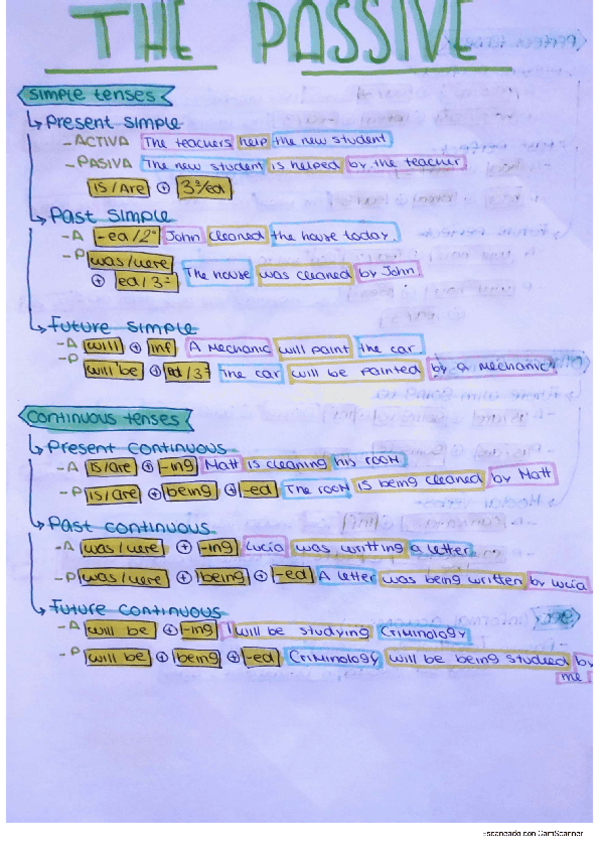 THE PASSIVE
Simple tenses
Present simple
- ACTIVA The teachers help the new student
- PASIVA The new student is helped by the teacher
is/are + 3ª/ed
Past simple
- A -ed/2ª John cleaned the house today.
- P was/were
+ ed/3ª The house was cleaned by John
Future simple
- A will + inf A Mechanic will paint the car
- P will be + ed/3ª The car will be painted by a mechanic
Continuous tenses
Present continuous
- A is/are + -ing Matt is cleaning his room
- P is/are + being + -ed The room is being cleaned by Matt
Past continuous
- A was/were + -ing Lucía was writting a letter
- P was/were + being + -ed A letter was being written by lucía
Future continuous
- A will be + -ing I will be studying Criminology
- P will be + being + -ed Criminology will be being studied by
me
Escaneado con CamScanner